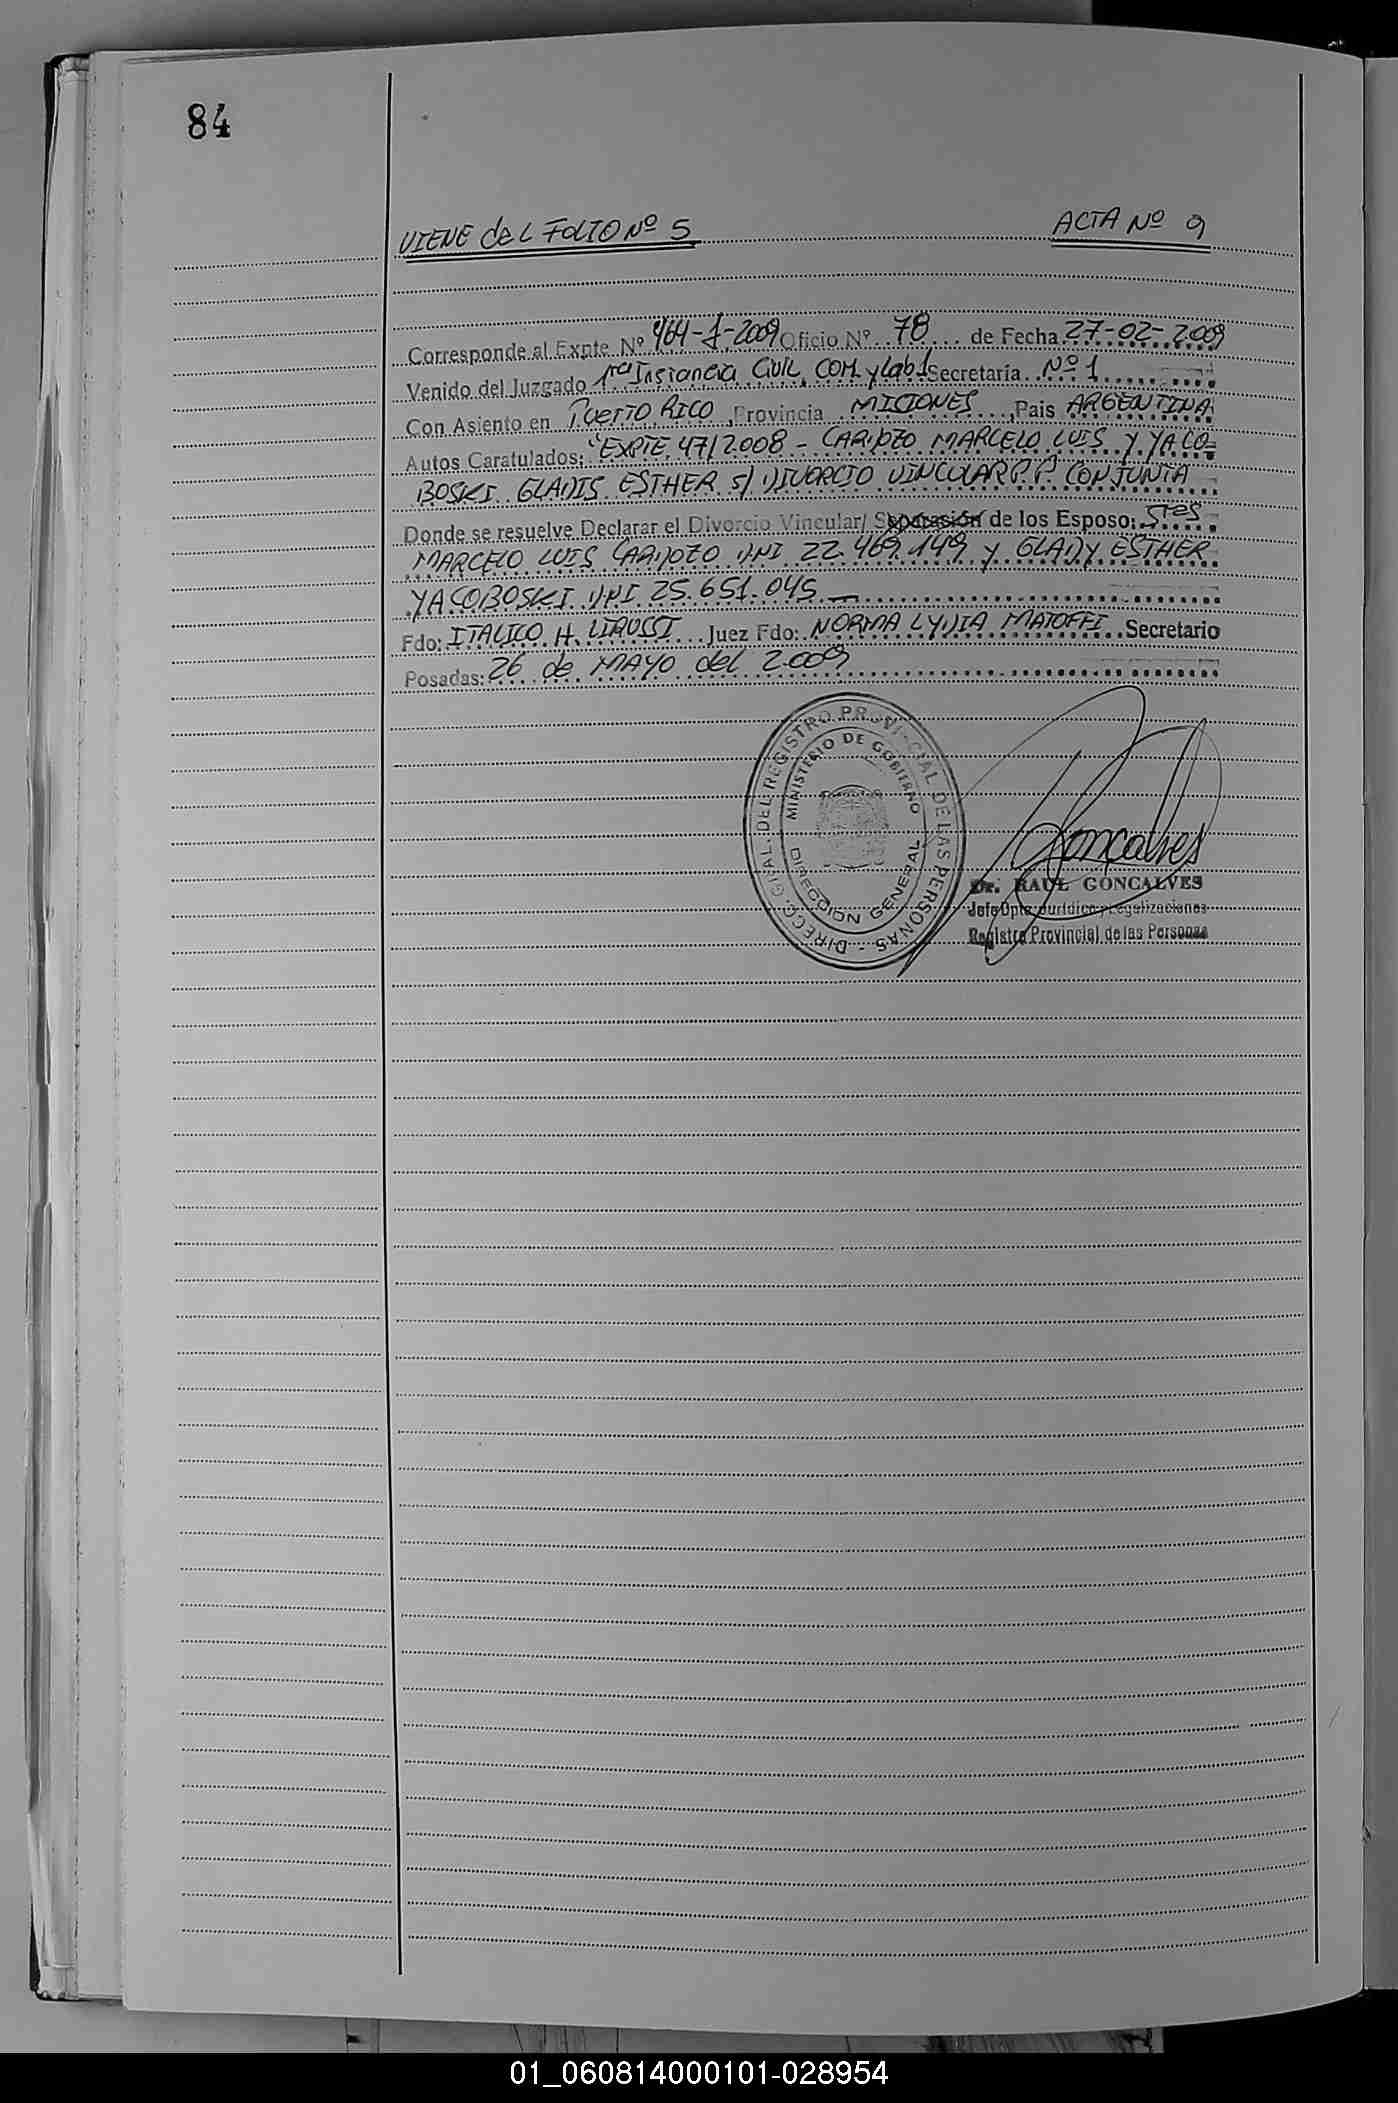 84
VIENE del FOLIO Nº 5 ACTA Nº 9
Corresponde al Expte Nº 464-J-2009 Oficio Nº 78 de Fecha 27-02-2009
Venido del Juzgado 1ra Instancia Civil, COM. y Lab 1 Secretaría Nº 1
Con Asiento en Puerto Rico, Provincia MISIONES, Pais ARGENTINA
Autos Caratulados: "EXPTE. 47/2008 - CARDOZO MARCELO LUIS Y YACO-
BOSKI GLADIS ESTHER s/ DIVORCIO VINCULAR P.P. CONJUNTA
Donde se resuelve Declarar el Divorcio Vincular/ Separasión de los Esposo: Sres
MARCELO LUIS CARDOZO DNI 22.469.149 y GLADY ESTHER
YACOBOSKI DNI 25.651.045 —
Fdo: ITALICO H. LIRUSSI Juez Fdo: NORMA LYDIA MATOFFI Secretario
Posadas: 26 de MAYO del 2009
DIRECC. GRAL. DEL REGISTRO PROVINCIAL DE LAS PERSONAS
MINISTERIO DE GOBIERNO
DIRECCION GENERAL
Goncalves
Dr. RAUL GONCALVES
Jefe Dpto. Jurídico y Legalizaciones
Registro Provincial de las Personas
01_060814000101-028954